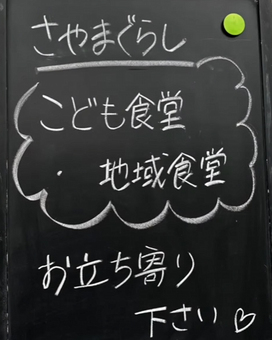 さやまぐらし
こども食堂
・ 地域食堂
お立ち寄り
下さい♡